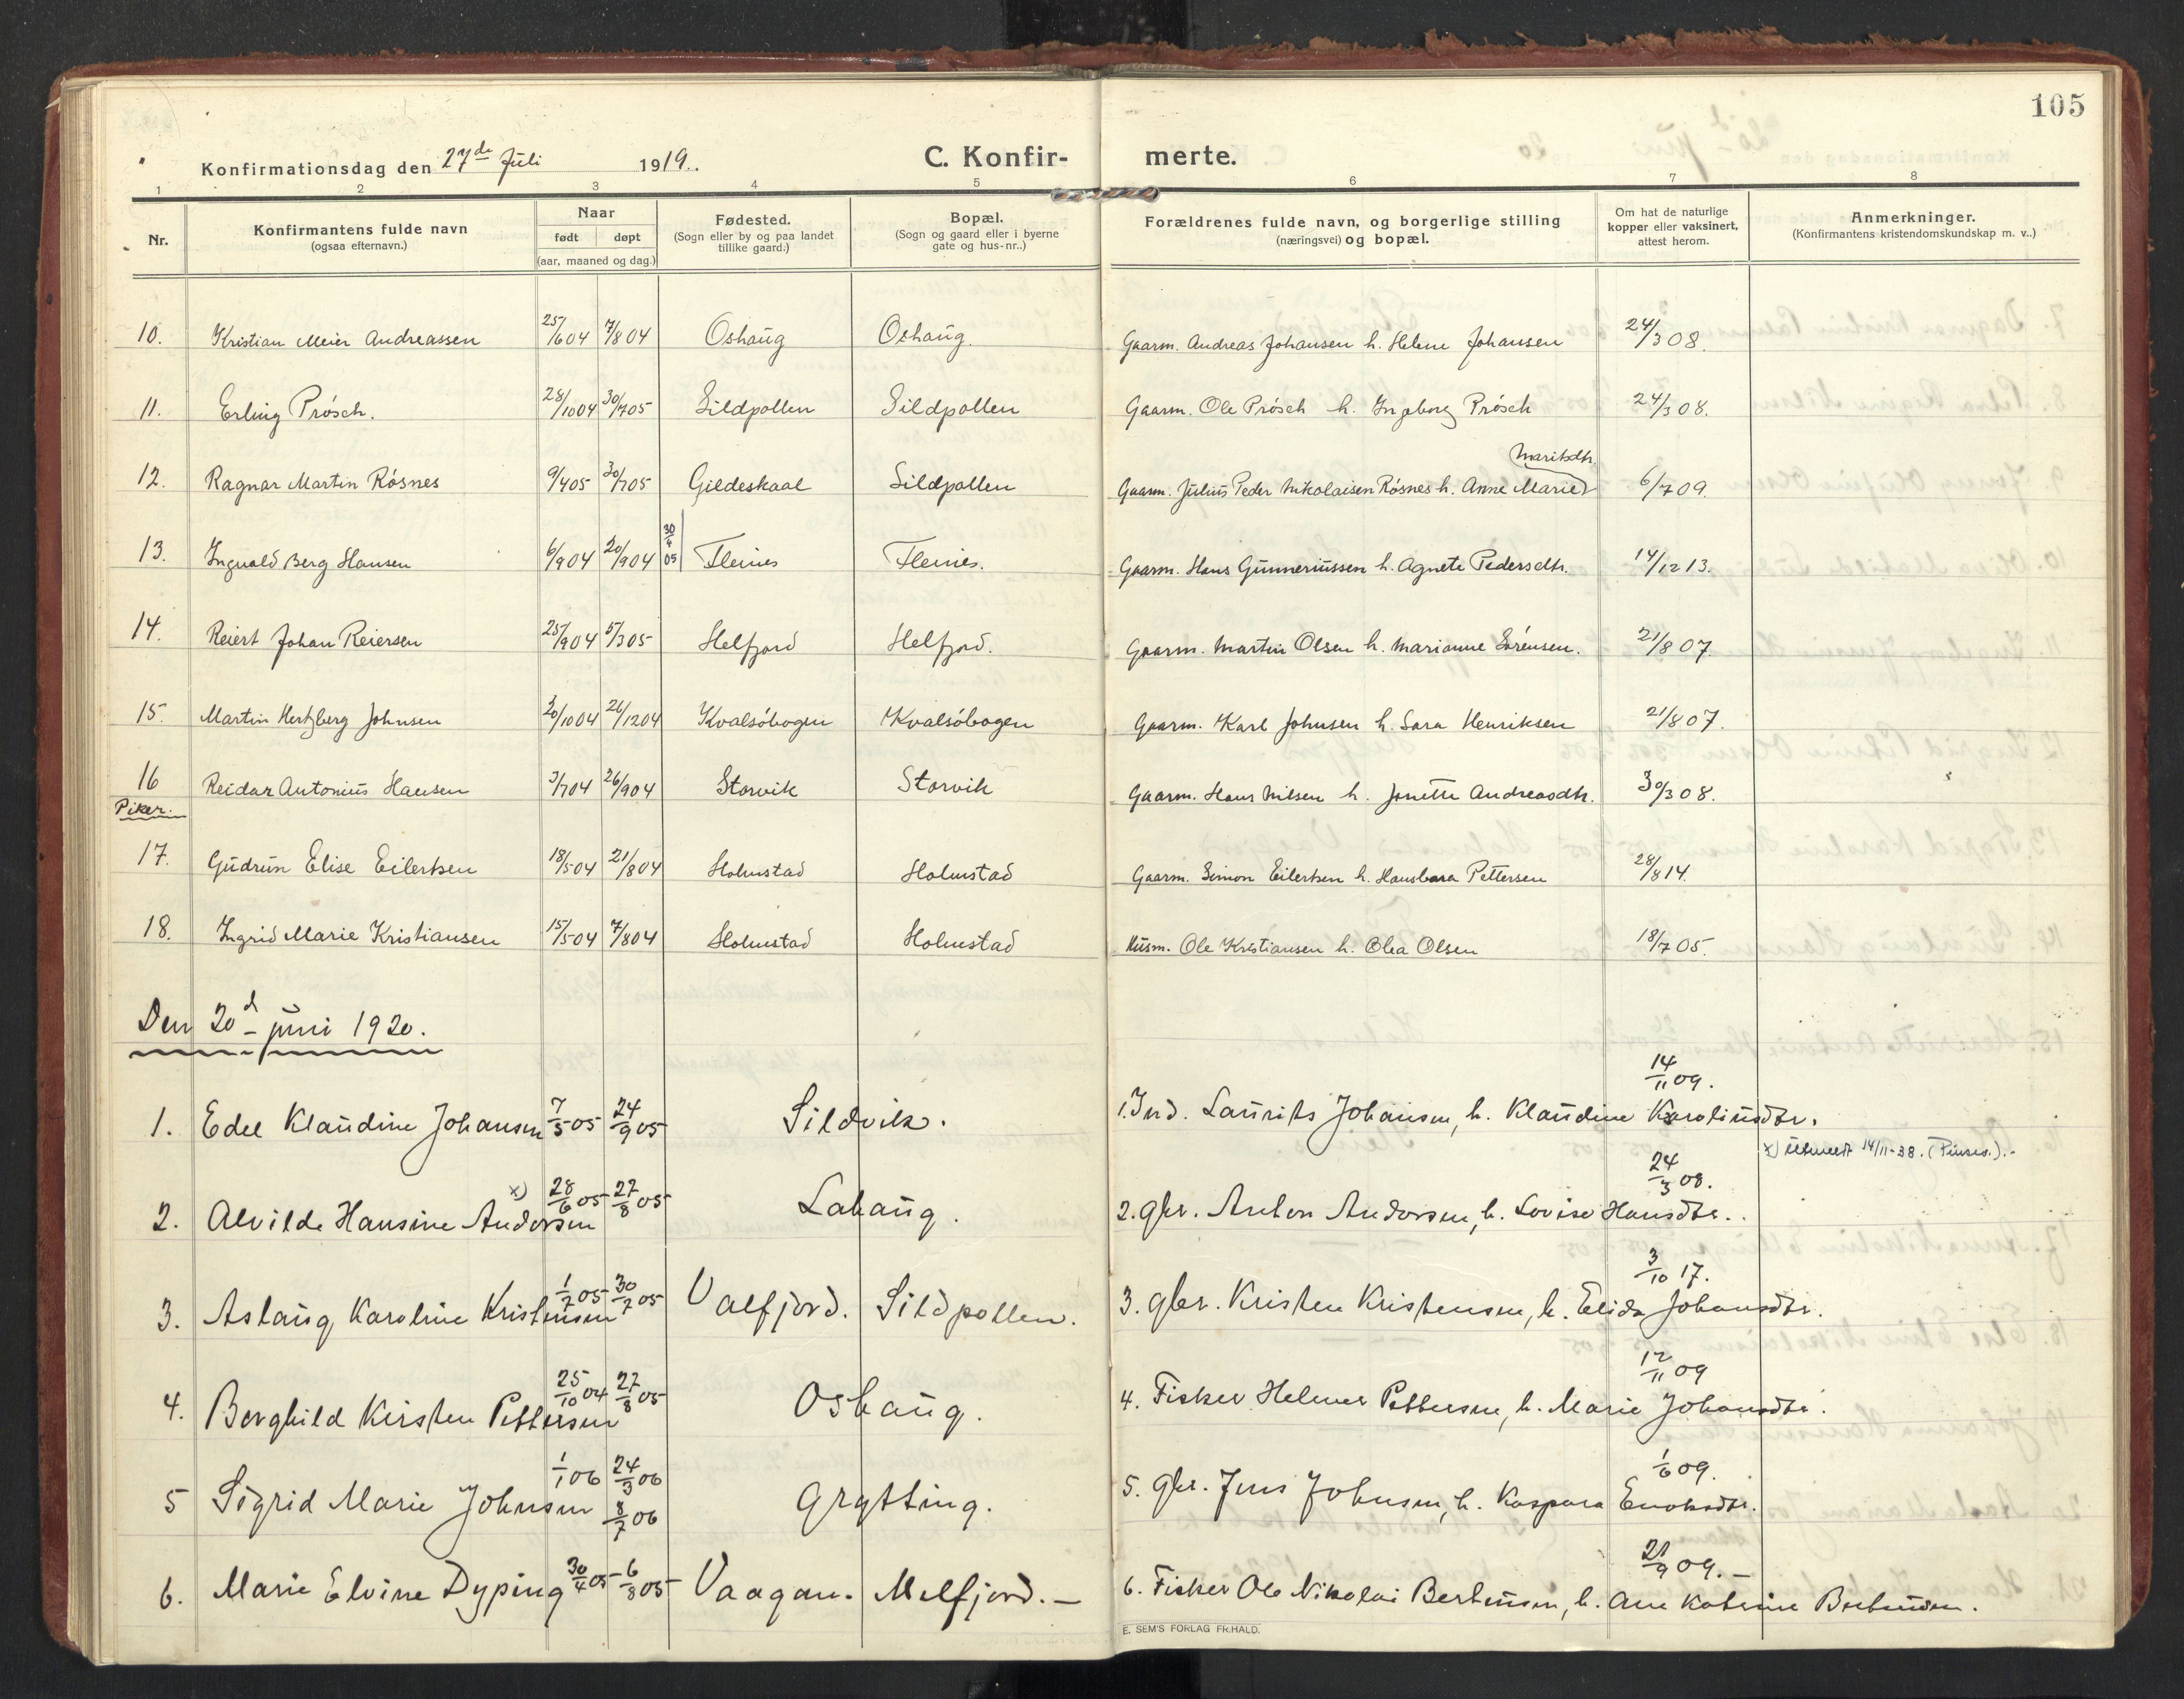 105
Konfirmationsdag den 27de Juli 1919.
C. Konfir- merte.
1 2 3 4 5 6 7 8
Nr.
Konfirmantens fulde navn
(ogsaa efternavn.)
Naar
født døpt
(aar, maaned og dag.)
Fødested.
(Sogn eller by og paa landet
tillike gaard.)
Bopæl.
(Sogn og gaard eller i byerne
gate og hus-nr..)
Forældrenes fulde navn, og borgerlige stilling
(næringsvei) og bopæl.
Om hat de naturlige
kopper eller vaksinert,
attest herom.
Anmerkninger.
(Konfirmantens kristendomskundskap m. v..)
10. Kristian Meier Andreassen 25/6 04 7/8 04 Oshaug Oshaug. Gaarm. Andreas Johansen h. Helene Johansen 24/3 08.
11. Erling Prösch. 28/10 04 30/7 05 Sildpollen Sildpollen Gaarm. Ole Prösch h. Ingeborg Prösch 24/3 08.
Maritsdtr.
12. Ragnar Martin Rösnes 9/4 05 30/7 05 Gildeskaal Sildpollen Gaarm. Julius Peder Nikolaisen Rösnes h. Anne Marie 6/7 09.
13. Ingvald Berg Hansen 6/9 04 20/9 04 30/4 05 Fleines Fleines. Gaarm. Hans Gunneriussen h. Agnete Pedersdtr. 14/12 13.
14. Reiert Johan Reiersen 25/9 04 5/3 05 Helfjord Helfjord. Gaarm. Martin Olsen h. Marianne Sörensen. 21/8 07.
15. Martin Hertzberg Johnsen 30/10 04 26/12 04 Kvalsöbogen Kvalsöbogen Gaarm. Karl Johnsen h. Sara Henriksen 21/8 07.
16 Reidar Antonius Hansen 3/7 04 26/9 04 Storvik Storvik Gaarm. Hans Nilsen h. Jonette Andreasdtr. 30/3 08.
Piker.
17. Gudrun Elise Eilertsen 18/5 04 21/8 04 Holmstad Holmstad Gaarm. Simon Eilertsen h. Hansbara Pettersen 28/8 14.
18. Ingrid Marie Kristiansen 15/5 04 7/8 04 Holmstad Holmstad Husm. Ole Kristiansen h. Olea Olsen 18/7 05.
Den 20d juni 1920.
1. Edel Klaudine Johansen 7/5 05 24/9 05 Sildvik. 1. Ind. Laurits Johansen, h. Klaudine Karoliusdtr. 14/11 09.
x) Utmeldt 14/11-38. (Pinsev.).-
2. Alvilde Hansine Andorsen x) 28/6 05 27/8 05 Lahaug. 2. gbr. Anton Andorsen, h. Lovise Hansdtr. 24/3 08.
3. Aslaug Karoline Kristensen 1/2 05 30/7 05 Valfjord. Sildpollen. 3. gbr. Kristen Kristensen, h. Elida Johansdtr. 3/10 17.
4. Borghild Kirsten Pettersen 25/10 04 27/8 05 Oshaug. 4. Fisker Helmer Pettersen, h. Marie Johansdtr. 12/11 09
5 Sigrid Marie Johnsen 1/1 06 24/3 06 8/7 06 Grytting. 5. gbr. Jens Johnsen, h. Kaspara Enoksdtr. 1/6 09.
6. Marie Elvine Dyping 30/4 05 6/8 05 Vaagan. Melfjord. - 6. Fisker Ole Nikolai Bertensen, h. Ane Katrine Bertensen. 21/9 09. -
E. SEM'S FORLAG FR.HALD.